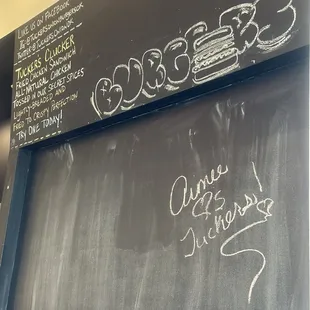 LIKE US ON FACEBOOK
TUCKERS CLUCKER
FRIED CHICKEN SANDWICH
ALL-NATURAL CHICKEN
TOSSED IN OUR SECRET SPICES
LIGHTLY-BREADED AND
FRIED TO CRISPY PERFECTION
TRY ONE TODAY!
BURGERS
Aimee
♡s
Tuckers!